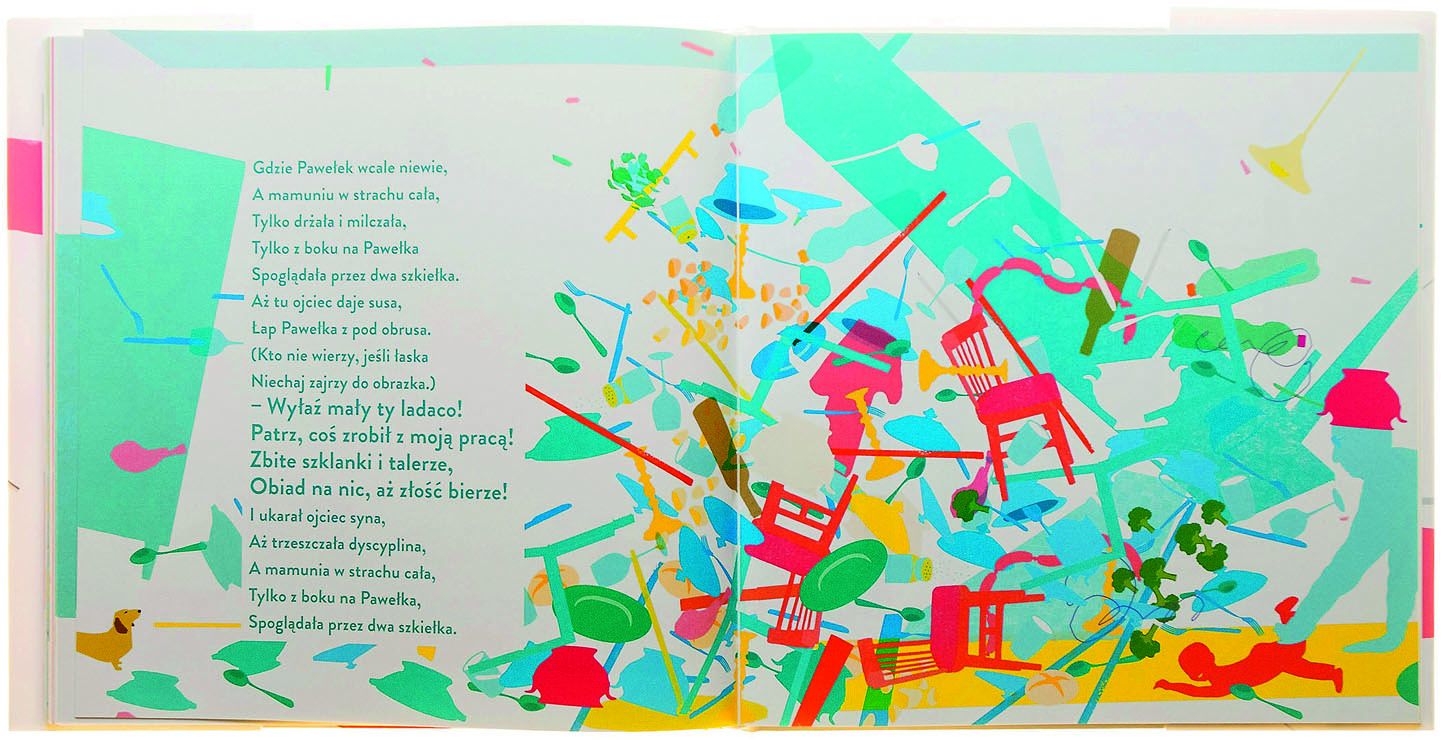 Gdzie Pawełek wcale niewie,
A mamuniu w strachu cała,
Tylko drżała i milczała,
Tylko z boku na Pawełka
Spoglądała przez dwa szkiełka.
Aż tu ojciec daje susa,
Łap Pawełka z pod obrusa.
(Kto nie wierzy, jeśli łaska
Niechaj zajrzy do obrazka.)
– Wyłaź mały ty ladaco!
Patrz, coś zrobił z moją pracą!
Zbite szklanki i talerze,
Obiad na nic, aż złość bierze!
I ukarał ojciec syna,
Aż trzeszczała dyscyplina,
A mamunia w strachu cała,
Tylko z boku na Pawełka,
Spoglądała przez dwa szkiełka.